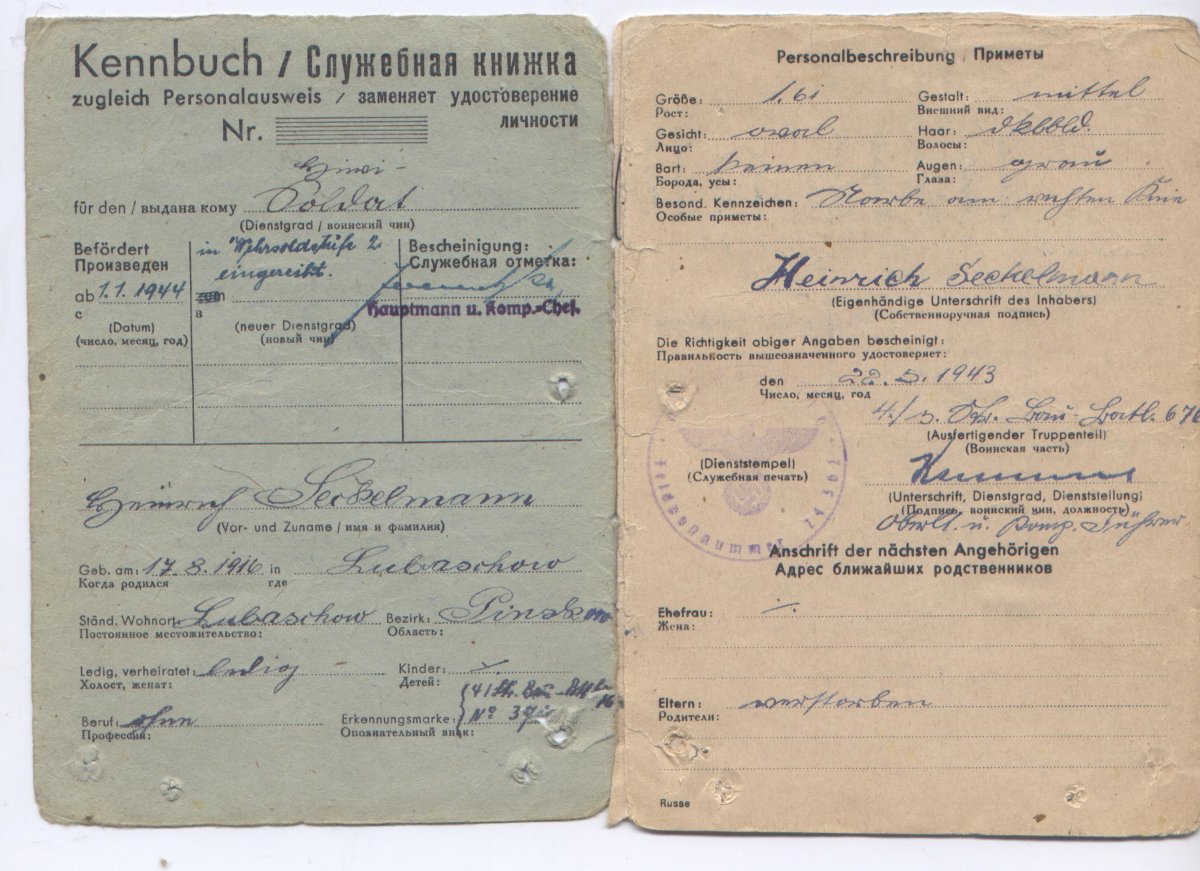 Kennbuch / Служебная книжка
zugleich Personalausweis / заменяет удостоверение
Nr. личности
Hiwi-
für den / выдана кому Soldat
(Dienstgrad / воинский чин)
Befördert
Произведен
ab 1.1.1944
с
(Datum)
(число, месяц, год)
in Wehrsoldstufe 2
eingereiht.
zum
в
(neuer Dienstgrad)
(новый чин)
Bescheinigung:
Служебная отметка:
Hauptmann u. Komp.-Chef.
Heinrich Seckelmann
(Vor- und Zuname / имя и фамилия)
Geb. am: 17.8.1916 in Lubaschow
Когда родился где
Ständ. Wohnort: Lubaschow Bezirk: Pinsk
Постоянное местожительство: Область:
Ledig, verheiratet: ledig Kinder: ⁒
Холост, женат: Детей:
Beruf: ohne Erkennungsmarke:
Профессия: Опознательный знак:
Personalbeschreibung / Приметы
Größe: 1.61 Gestalt: mittel
Рост: Внешний вид:
Gesicht: oval Haar: dkblold.
Лицо: Волосы:
Bart: keinen Augen: grau
Борода, усы: Глаза:
Besond. Kennzeichen: Narbe am rechten Knie
Особые приметы:
Heinrich Seckelmann
(Eigenhändige Unterschrift des Inhabers)
(Собственноручная подпись)
Die Richtigkeit obiger Angaben bescheinigt:
Правильность вышеозначенного удостоверяет:
den 22.5.1943
Число, месяц, год
Bau-Batl. 676
(Ausfertigender Truppenteil)
(Воинская часть)
(Dienststempel)
(Служебная печать)
(Unterschrift, Dienstgrad, Dienststellung)
(Подпись, воинский чин, должность)
Oberlt. u. Komp. Führer
Anschrift der nächsten Angehörigen
Адрес ближайших родственников
Ehefrau: ⁒
Жена:
Eltern: verstorben
Родители:
Russe